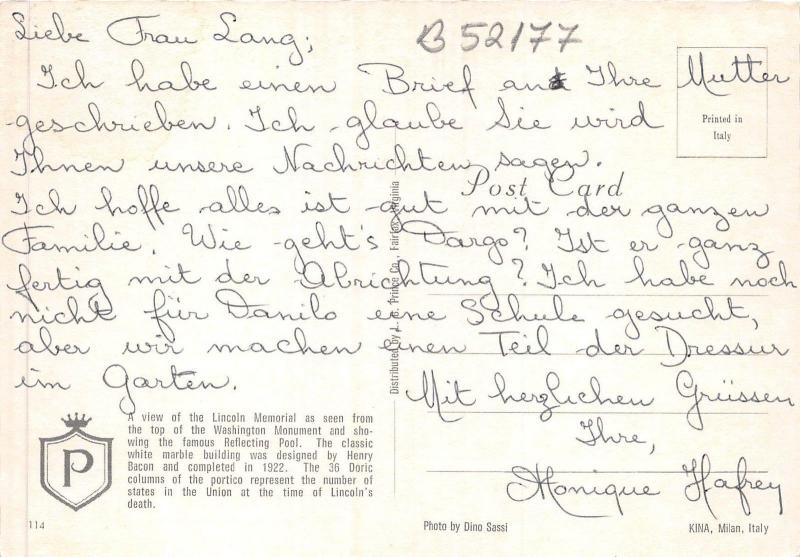 Liebe Frau Lang;
B 52177
Ich habe einen Brief an Ihre Mutter
geschrieben. Ich glaube Sie wird
Ihnen unsere Nachrichten sagen.
Ich hoffe alles ist gut mit der ganzen
Familie. Wie geht's Dargo? Ist er ganz
fertig mit der Abrichtung? Ich habe noch
nicht für Danilo eine Schule gesucht,
aber wir machen einen Teil der Dressur
im Garten.
Mit herzlichen Grüssen
Ihre,
Monique Hafrey
Printed in
Italy
Post Card
Distributed by L. B. Prince Co., Fairfax, Virginia
A view of the Lincoln Memorial as seen from
the top of the Washington Monument and sho-
wing the famous Reflecting Pool. The classic
white marble building was designed by Henry
Bacon and completed in 1922. The 36 Doric
columns of the portico represent the number of
states in the Union at the time of Lincoln's
death.
P
114
Photo by Dino Sassi
KINA, Milan, Italy